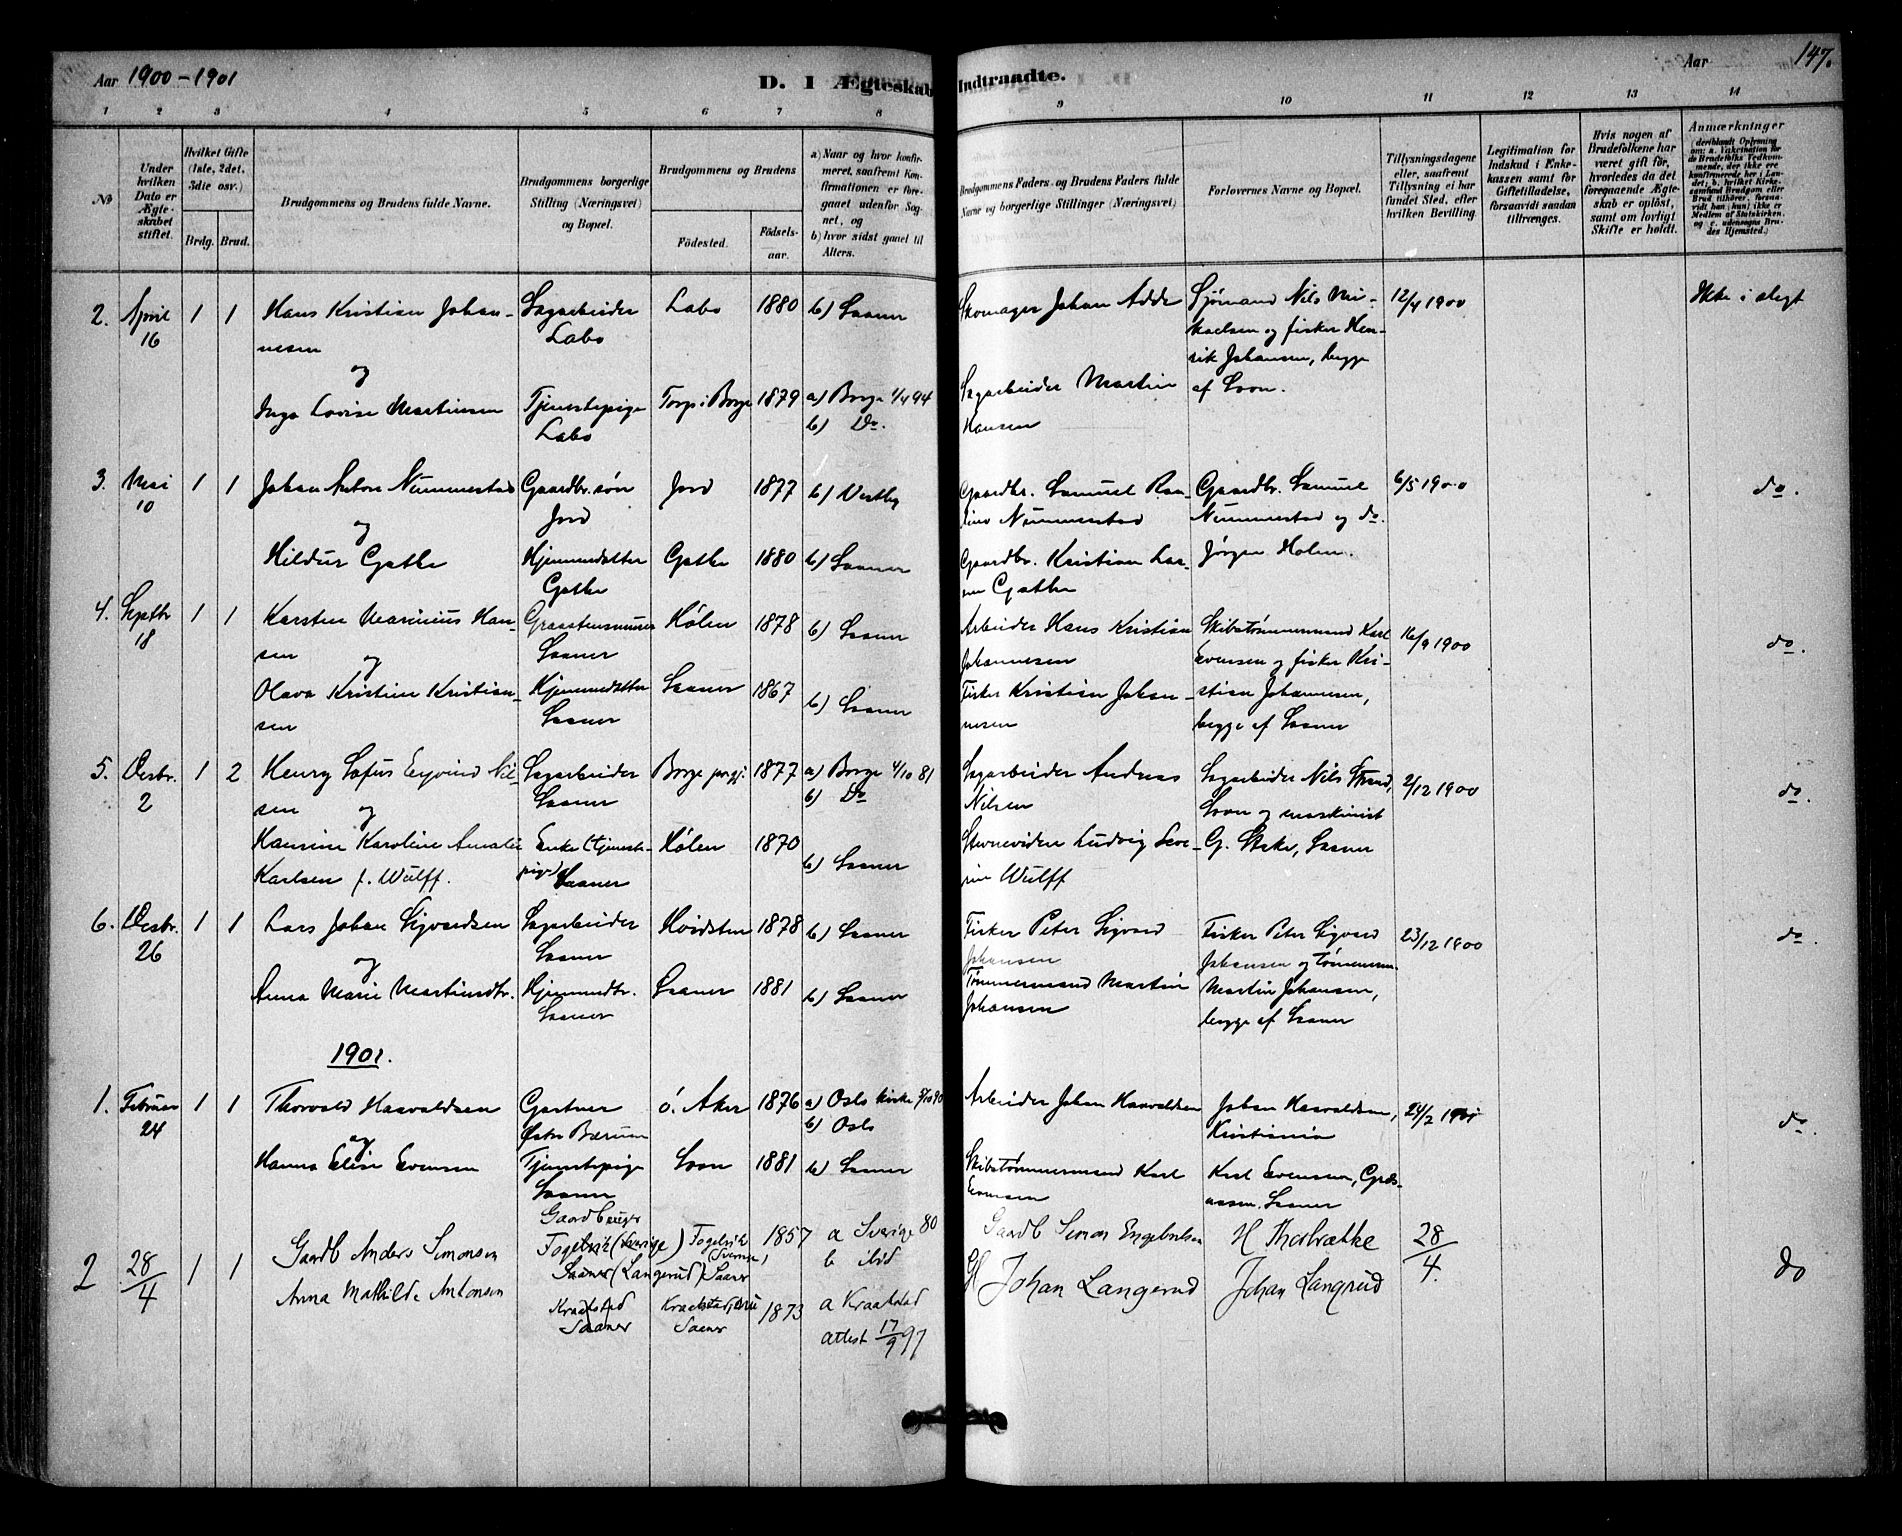 Aar 1900-1901
D. 1 Ægteskab Indtraadte.
Aar 147.
1 2 3 4 5 6 7 8 9 10 11 12 13 14
No
Under hvilken Dato er Ægteskabet stiftet.
Hvilket Gifte (1ste, 2det, 3die osv.)
Brdg. Brud.
Brudgommens og Brudens fulde Navne.
Brudgommens borgerlige Stilling (Næringsvei) og Bopæl.
Brudgommens og Brudens
Födested.
Födsels-aar.
a) Naar og hvor konfirmeret, saafremt Konfirmationen er foregaaet udenfor Sognet, og
b) hvor sidst gaaet til Alters.
Brudgommens Faders og Brudens Faders fulde Navne og borgerlige Stillinger (Næringsvei)
Forlovernes Navne og Bopæl.
Tillysningsdagene eller, saafremt Tillysning ei har fundet Sted, efter hvilken Bevilling.
Legitimation for Indskud i Enkekassen samt for Giftetilladelse, forsaavidt saadan tiltrænges.
Hvis nogen af Brudefolkene har været gift för, hvorledes da det foregaaende Ægteskab er oplöst, samt om lovligt Skifte er holdt.
Anmærkninger
(deriblandt Oplysning om: a. Vakcination for de Brudefolks Vedkommende, der ikke ere konfirmerede her i Landet; b. hvilket Kirkesamfund Brudgom eller Brud tilhörer, forsaavidt han (hun) ikke er Medlem af Statskirken, og c. udensogns Brudes Hjemsted.)
2. April 16 1 1 Hans Kristian Johannesen Sagarbeider Labo Labo 1880 b) Saaner Skomager Johan Adde Sjømand Nils Mikaelsen og fisker Henrik Johansen, begge af Soon. 12/4 1900 Ikke i slegt
og
Inga Lovise Martinsen Tjenestepige Labo Torp i Borge 1879 a) Borge 1/4 94 b) Do. Sagarbeider Martin Hansen
3. Mai 10 1 1 Johan Anton Nummestad Gaardbr. søn Jord Jord 1877 b) Vestby Gaardbr. Samuel Nummestad Gaardbr. Samuel Nummestad og do. Jørgen Holen. 6/5 1900 do.
og
Hildur Gathe Hjemmedatter Gathe Gathe 1880 b) Saaner Gaardbr. Kristian Larsen Gathe
4. Septbr 18 1 1 Karsten Marinius Hansen Saaner Hølen 1878 b) Saaner Arbeider Hans Kristian Johannesen Skibstømmermand Karl Evensen og fisker Kristian Johannesen, begge af Saaner 16/9 1900 do.
og
Olava Kristine Kristiansen Hjemmedatter Saaner Saaner 1867 b) Saaner Fisker Kristian Johannesen
5. Desbr. 2 1 2 Henry Sofus Eyvind Nilsen Sagarbeider Saaner Borge 1877 a) Borge 4/10 81 b) Do Sagarbeider Andreas Nilsen Sagarbeider Nils Strand, Soon og maskinist G. Stake, Saaner 2/12 1900 do.
og
Hansine Karoline Amalie Karlsen f. Wulff. Enke (Tjenestepige) Saaner Hølen 1870 b) Saaner Ludvig Severin Wulff
6. Desbr. 26 1 1 Lars Johan Sigvardsen Sagarbeider Saaner Hvidsten 1878 b) Saaner Fisker Peter Sigvard Johansen Fisker Peter Sigvard Johansen og Tømmerm. Martin Johansen, begge af Saaner 23/12 1900 do.
og
Anna Marie Martinsdtr. Hjemmedtr. Saaner Saaner 1881 b) Saaner Tømmermand Martin Johansen
1901.
1. Februar 24 1 1 Thorvald Haavaldsen Gartner Østre Bærum ø. Aker 1876 a) Oslo kirke b) Oslo Arbeider Johan Haavaldsen Johan Haavaldsen, Kristiania 24/2 1901 do.
og
Hanna Elise Evensen Tjenestepige Saaner Soon 1881 b) Saaner Skibstømmermand Karl Evensen Karl Evensen, Saaner
2 28/4 1 1 Gaardb Anders Simonsen Gaardbruger Fogelvik (Sverige) Saaner (Langerud) Fogelvik Sverige, Saaner 1857 a Sverige 80 b ibid Gaardb Simon Engebretsen H Thorbrække 28/4. do
Anna Mathilde Antonsen Kraakstad Saaner Kraakstad, Saaner 1873 a Kraakstad attest 17/9 97 Johan Langerud Johan Langrud